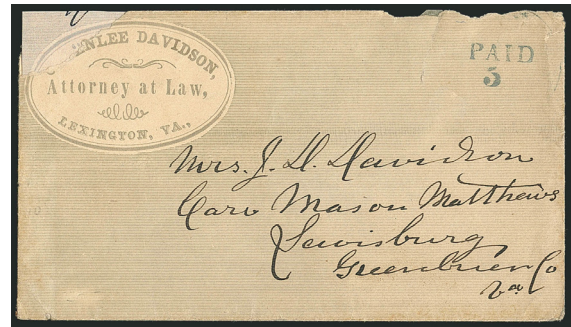 GREENLEE DAVIDSON,
Attorney at Law,
LEXINGTON, VA.,
PAID
5
Mrs. J. D. Davidson
Care Mason Matthews
Lewisburg
Greenbrier Co
Va